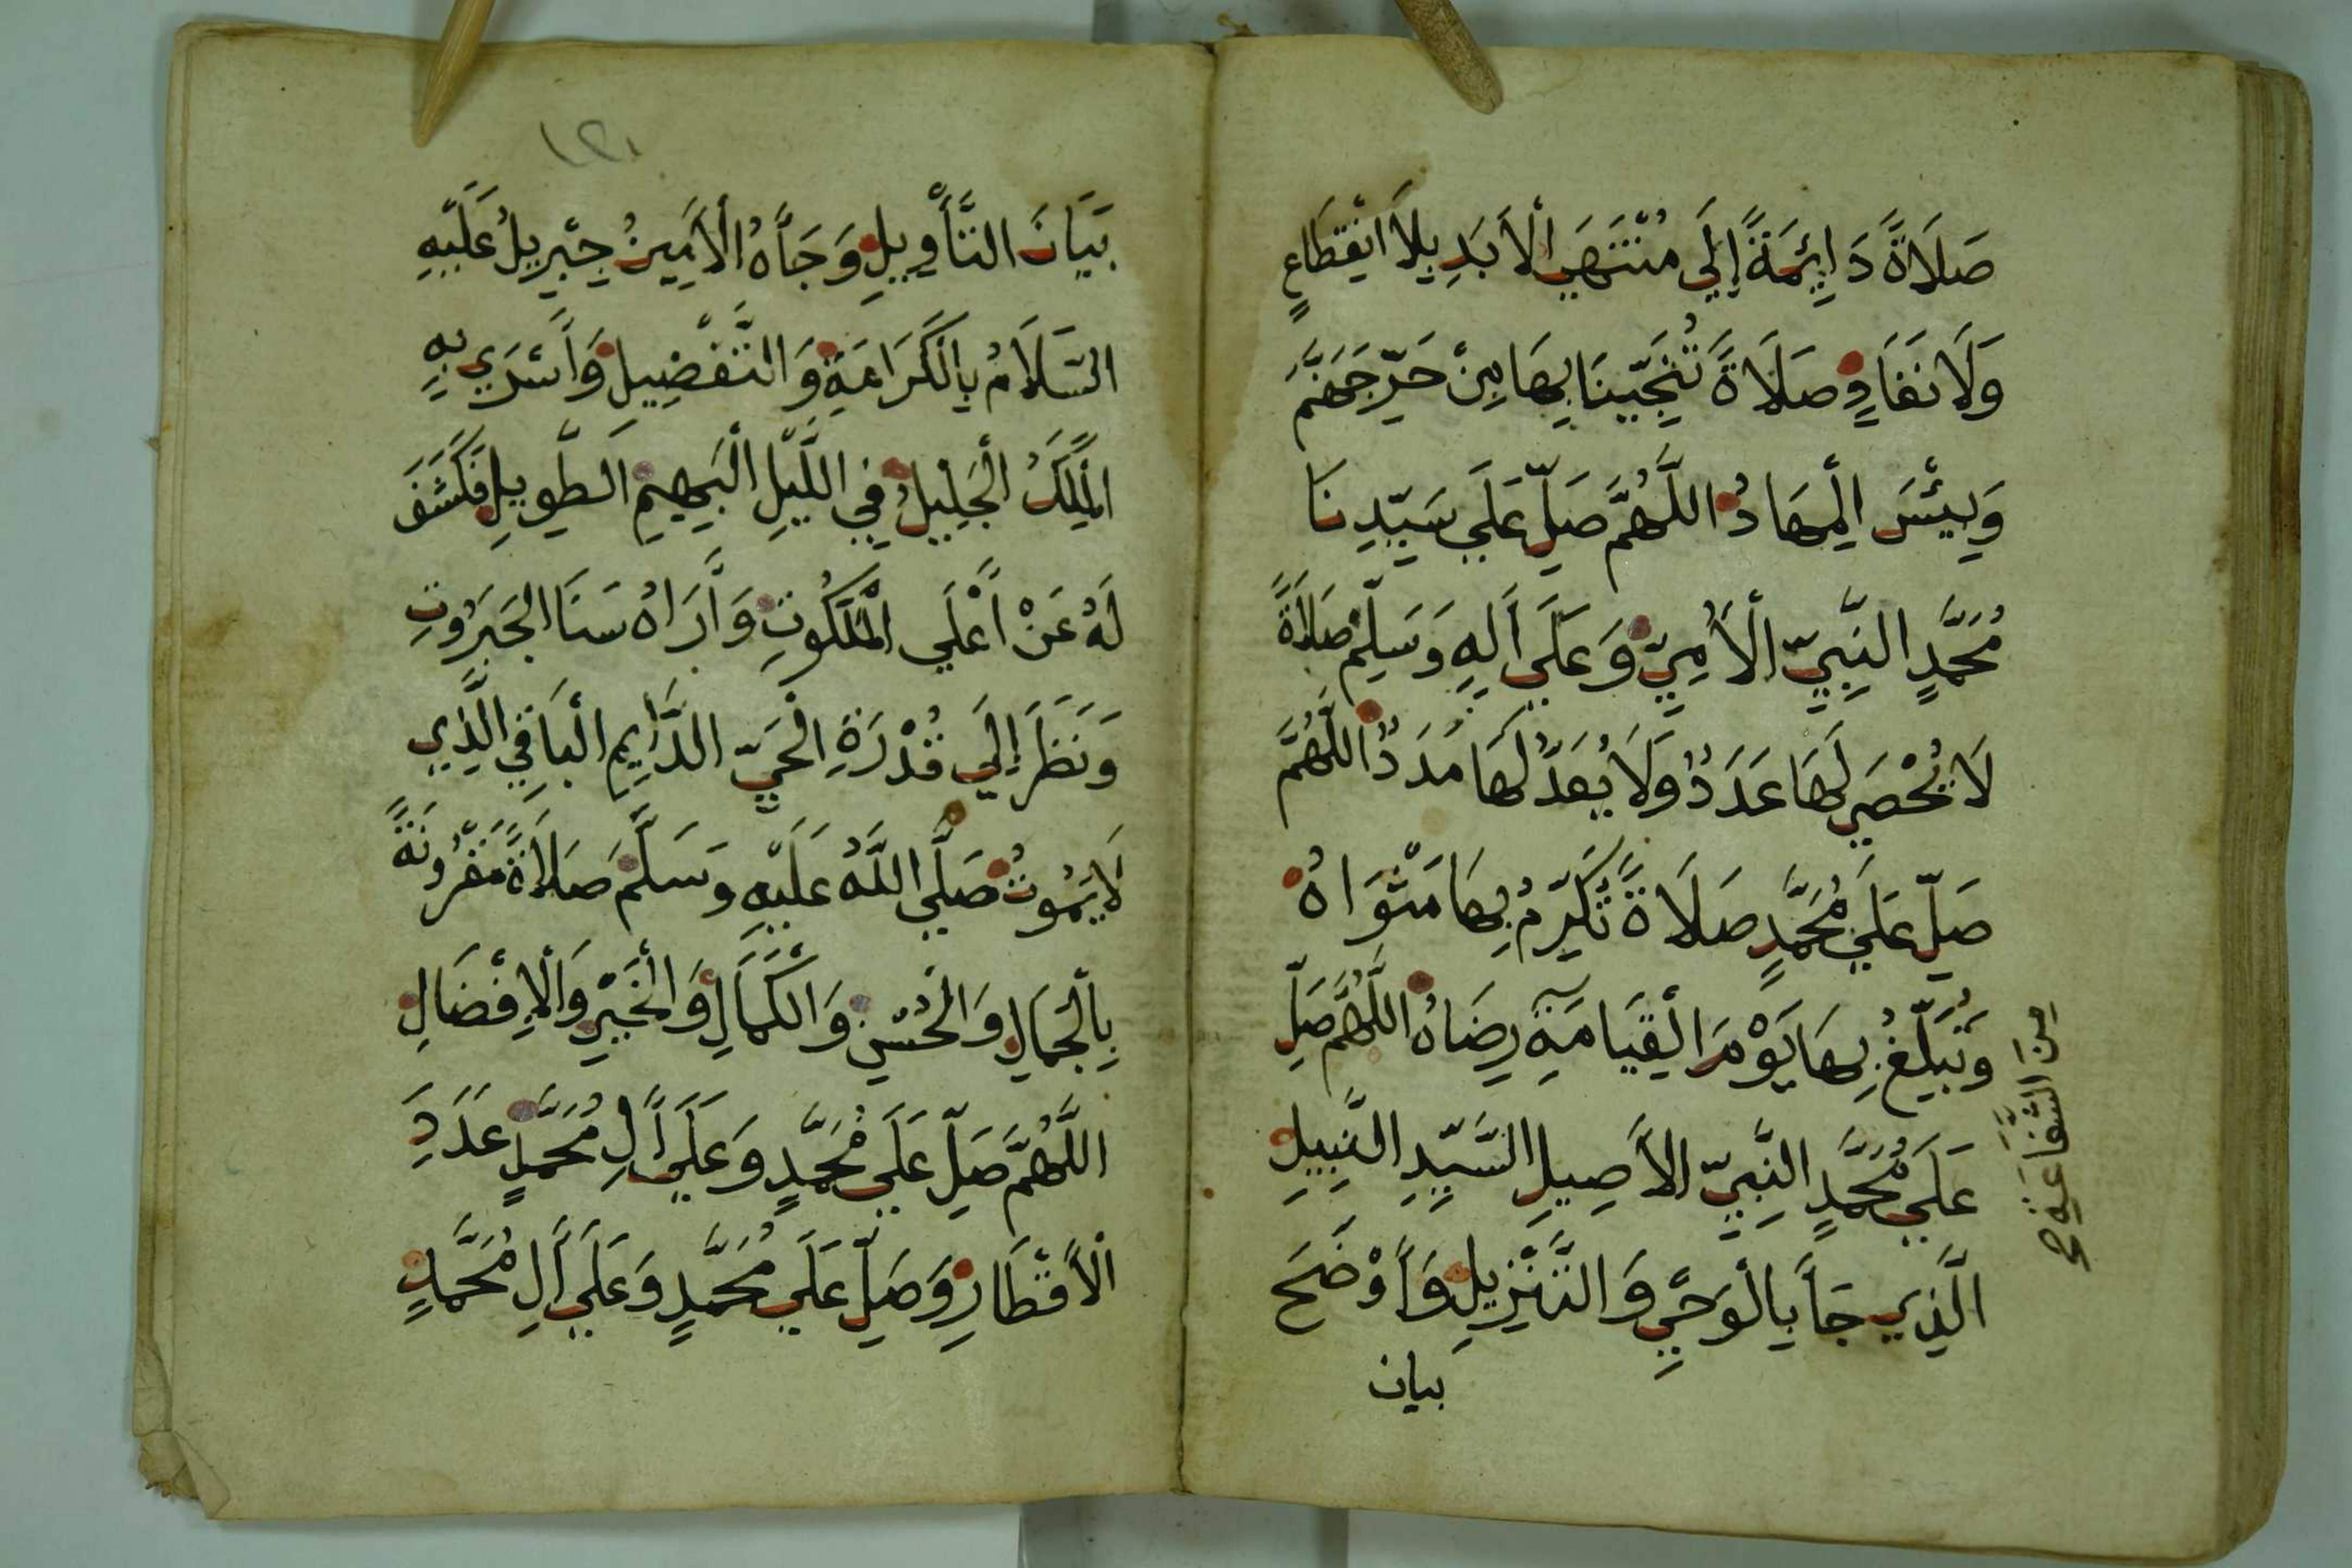 صَلَاةً دَائِمَةً إِلَي مُنْتَهَي الْأَبَدِ بِلَا انْقِطَاعٍ
وَلَا نَفَادٍ صَلَاةً تُنَجِّينَا بِهَا مِنْ حَرِّ جَهَنَّمَ
وَبِئْسَ الْمِهَادُ اللَّهُمَّ صَلِّ عَلَي سَيِّدِنَا
مُحَمَّدٍ النَّبِيِّ الْأُمِّيِّ وَعَلَي اَلِهِ وَسَلِّمْ صَلَاةً
لَا يُحْصَي لَهَا عَدَدٌ وَلَا يُعَدُّ لَهَا مَدَدٌ اللَّهُمَّ
صَلِّ عَلَي مُحَمَّدٍ صَلَاةً تُكَرِّمُ بِهَا مَثْوَاهُ
وَتُبَلِّغُ بِهَا يَوْمَ الْقِيَامَةِ رِضَاهُ اللَّهُمَّ صَلِّ
مِنَ الشَّفَاعَةِ صح
عَلَي مُحَمَّدٍ النَّبِيِّ الْأَصِيلِ السَّيِّدِ النَّبِيلِ
الَّذِي جَاَ بِالْوَحْيِ وَالتَّنْزِيلِ وَأَوْضَحَ
بيان
١٢١
بَيَانَ التَّأْوِيلِ وَجَاَهُ الْأَمِينُ جِبْرِيلُ عَلَيْهِ
السَّلَامُ بِالْكَرَامَةِ وَالتَّفْضِيلِ وَأَسْرَي بِهِ
الْمَلِكُ الْجَلِيلُ فِي اللَّيْلِ الْبَهِيمِ الطَّوِيلِ فَكَشَفَ
لَهُ عَنْ أَعْلَي الْمَلَكُوتِ وَأَرَاهُ سَنَا الْجَبَرُوتِ
وَنَظَرَ إِلَي قُدْرَةِ الْحَيِّ الدَّايِمِ الْبَاقِي الَّذِي
لَا يَمُوتُ صَلَّي اللَّهُ عَلَيْهِ وَسَلَّمَ صَلَاةً مَقْرُونَةً
بِالْجَمَالِ وَالْحُسْنِ وَالْكَمَالِ وَالْخَيْرِ وَالْإِفْضَالِ
اللَّهُمَّ صَلِّ عَلَي مُحَمَّدٍ وَعَلَي أَلِ مُحَمَّدٍ عَدَدَ
الْأَقْطَارِ وَصَلِّ عَلَي مُحَمَّدٍ وَعَلَي أَلِ مُحَمَّدٍ